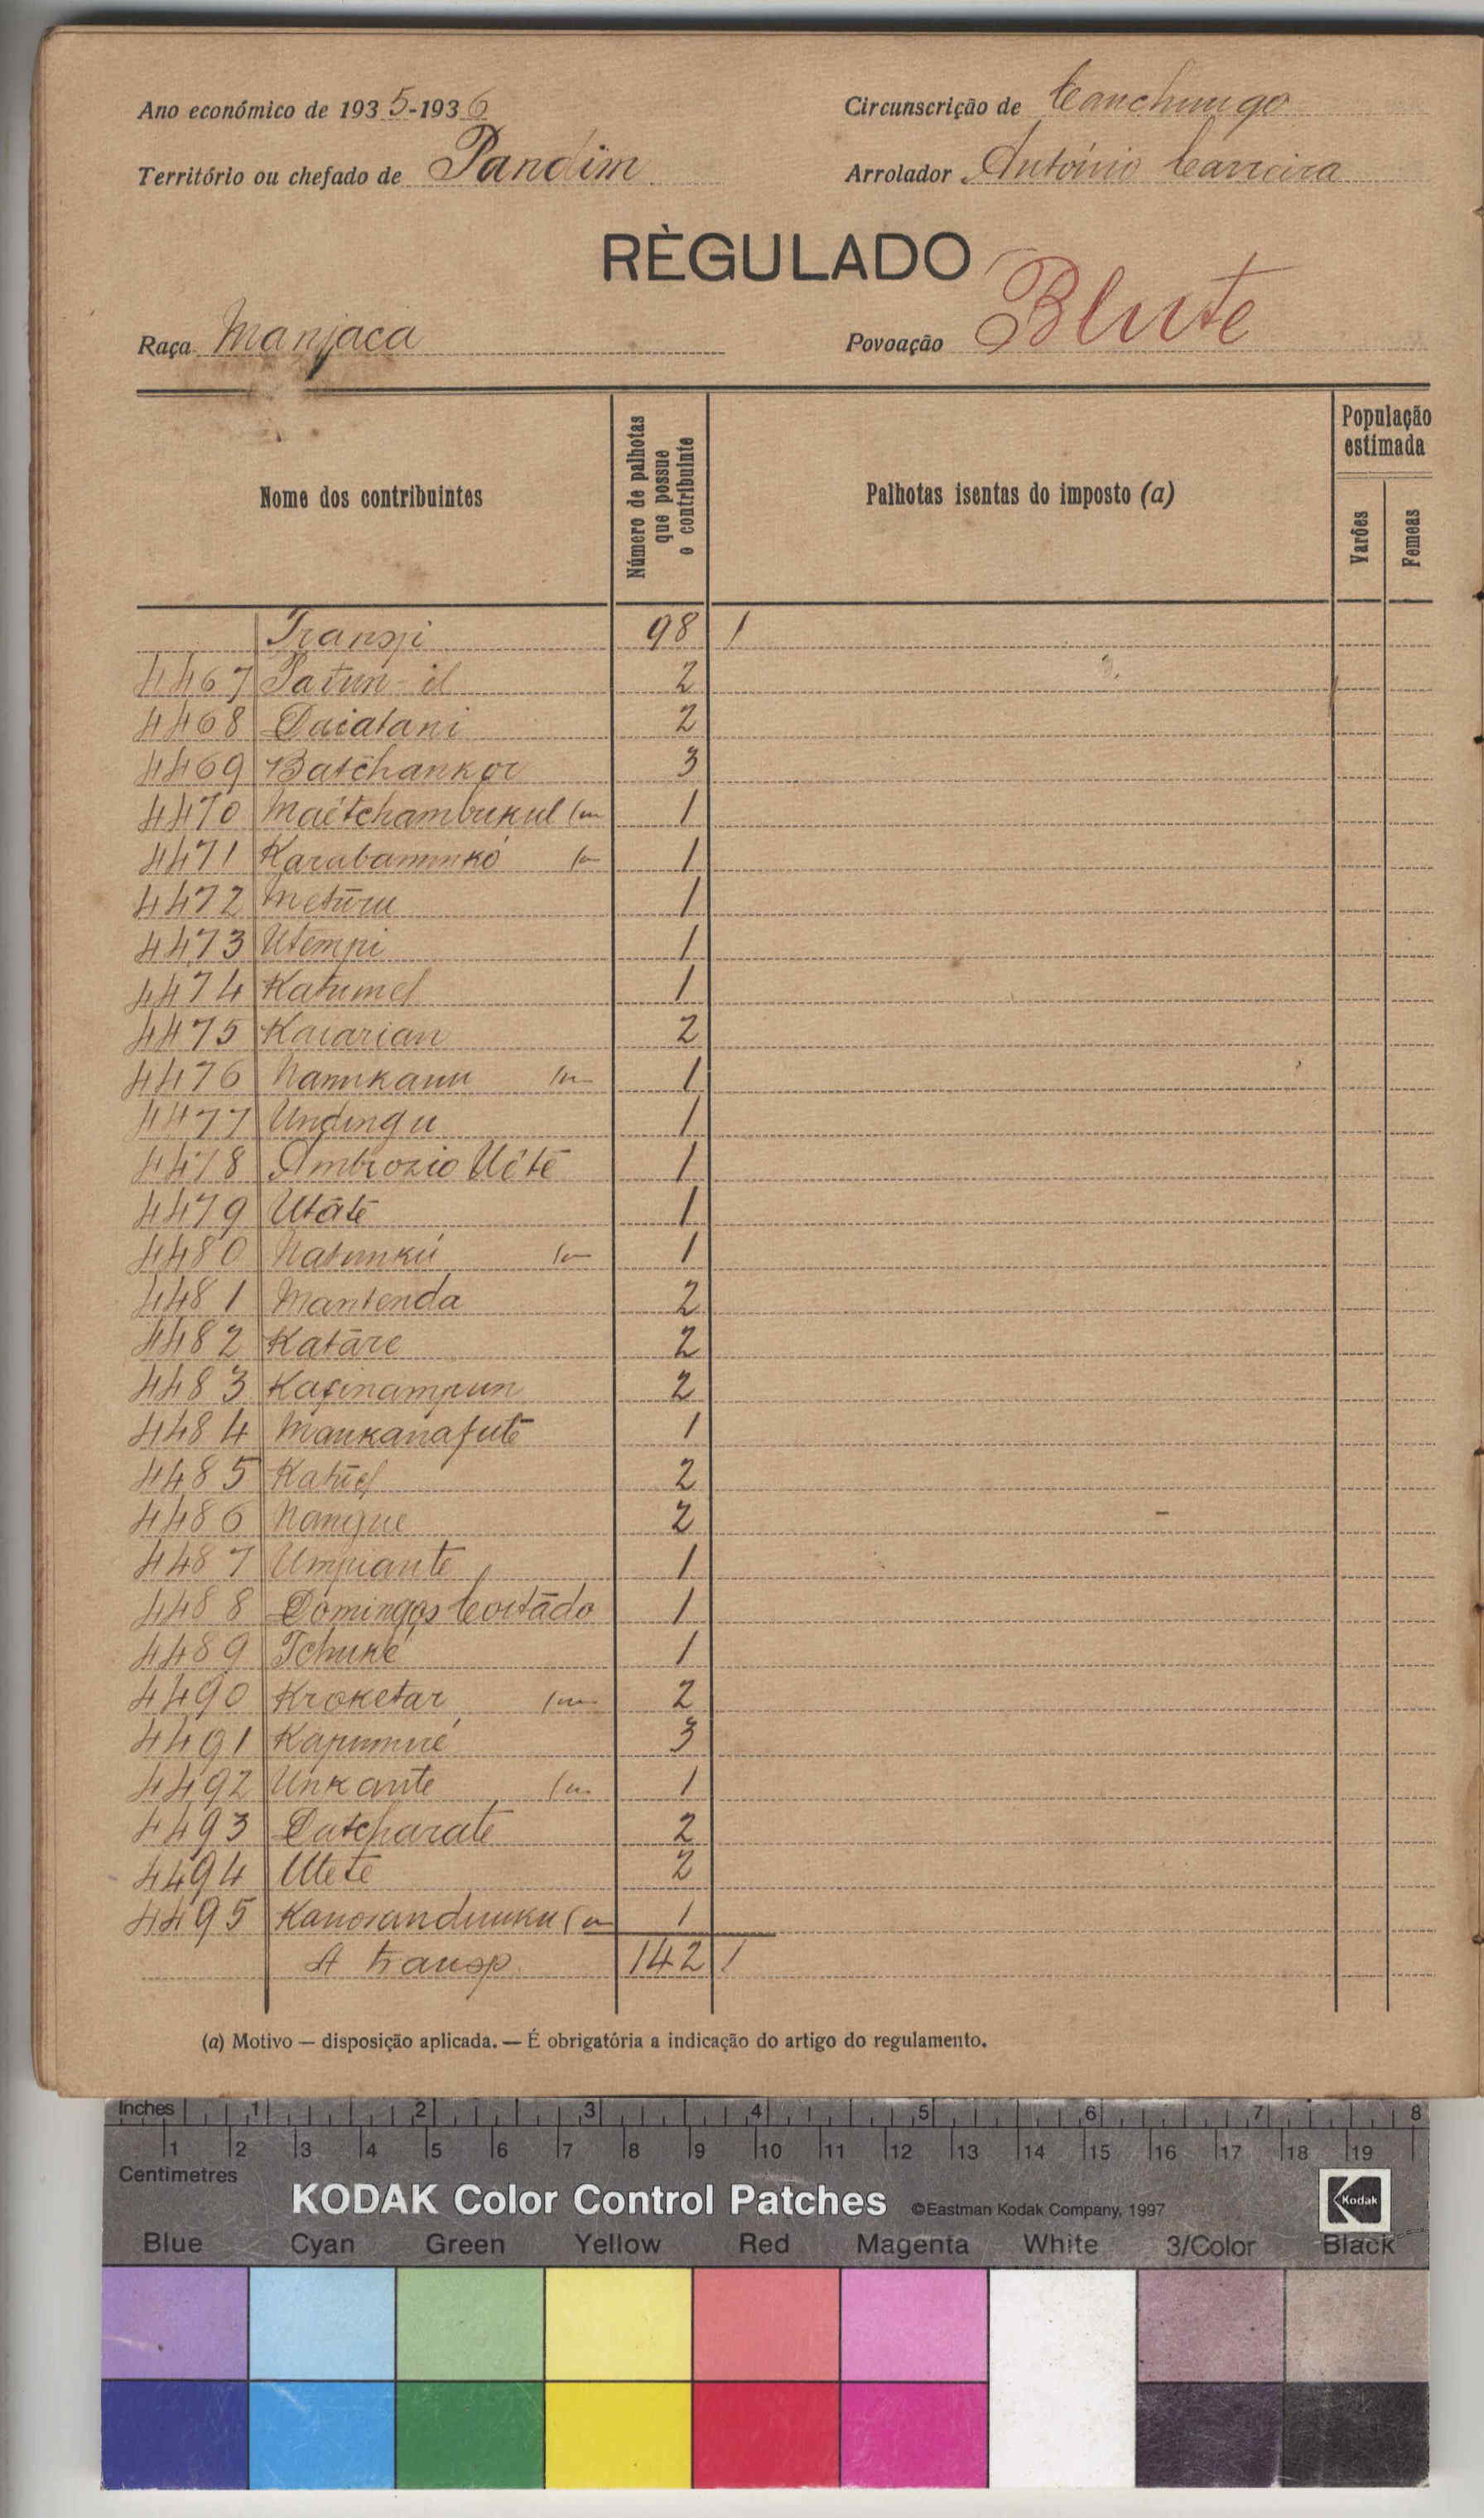 Ano económico de 1935-1936
Circunscrição de Canchungo
Território ou chefado de Pandim
Arrolador António Carreira
RÈGULADO
Raça Manjaca
Povoação Blute
Nome dos contribuintes
Número de palhotas que possue o contribuinte
Palhotas isentas do imposto (a)
População estimada
Varões
Femeas
Transp. 98 1
4467 Patun-il 2
4468 Daiatani 2
4469 Batchankor 3
4470 Maétchambukul 1
4471 1
4472 Metūru 1
4473 Utempi 1
4474 Katumel 1
4475 Kaiarian 2
4476 1
4477 Undingu 1
4478 Ambrozio Uéte 1
4479 Utāte 1
4480 Natunkú 1
4481 Mantenda 2
4482 Katāre 2
4483 2
4484 Maukanafutē 1
4485 Katūel 2
4486 Nangue 2
4487 Umpiante 1
4488 Domingos Cortādo 1
4489 Tchuké 1
4490 Kroketar 2
4491 3
4492 Unkante 1
4493 Datcharate 2
4494 Utete 2
4495 1
A transp. 142 1
(a) Motivo — disposição aplicada. — É obrigatória a indicação do artigo do regulamento.
Inches 1 2 3 4 5 6 7 8
1 2 3 4 5 6 7 8 9 10 11 12 13 14 15 16 17 18 19
Centimetres
KODAK Color Control Patches ©Eastman Kodak Company, 1997
Kodak
Blue Cyan Green Yellow Red Magenta White 3/Color Black